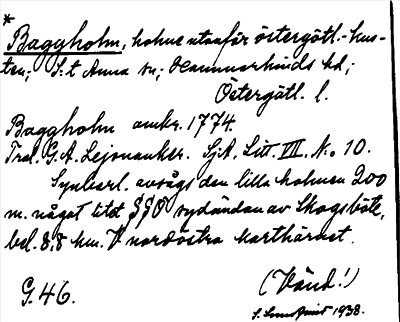 *
Baggholm, holme utanför östergötl.-kus-
ten; S:t Anna sn; Hammarkinds hd;
Östergötl. l.
Baggholm omkr. 1774.
Tral. G.A. Lejonanker. SjA, Litt. VII. No 10.
Synberl. avsågs den lilla holmen 200
m. något litet SSO sydändan av Skogsböte,
bel. 8,8 km. V nordöstra karthörnet.
G. 46.
(Vänd!)
1938.